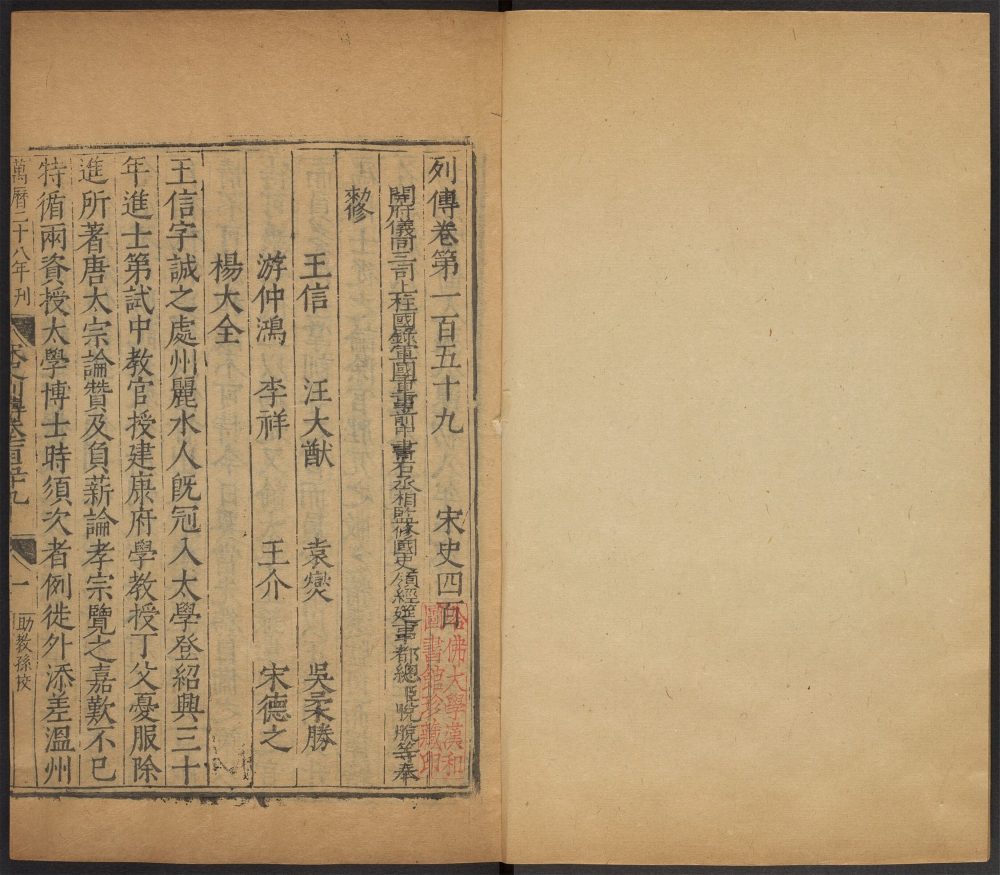 列傳卷第一百五十九 宋史四百
開府儀同三司上柱國錄軍國重事前中書右丞相監修國史領經筵事都總裁脫脫等奉
敕修
王信 汪大猷 袁燮 吳柔勝
游仲鴻 李祥 王介 宋德之
楊大全
王信字誠之處州麗水人旣冠入太學登紹興三十
年進士第試中教官授建康府學教授丁父憂服除
進所著唐太宗論贊及負薪論孝宗覽之嘉歎不已
特循兩資授太學博士時須次者例徙外添差溫州
萬曆二十八年刊 宋史列傳卷一百五十九 一 助教孫校
哈佛大學漢和
圖書館珍藏印